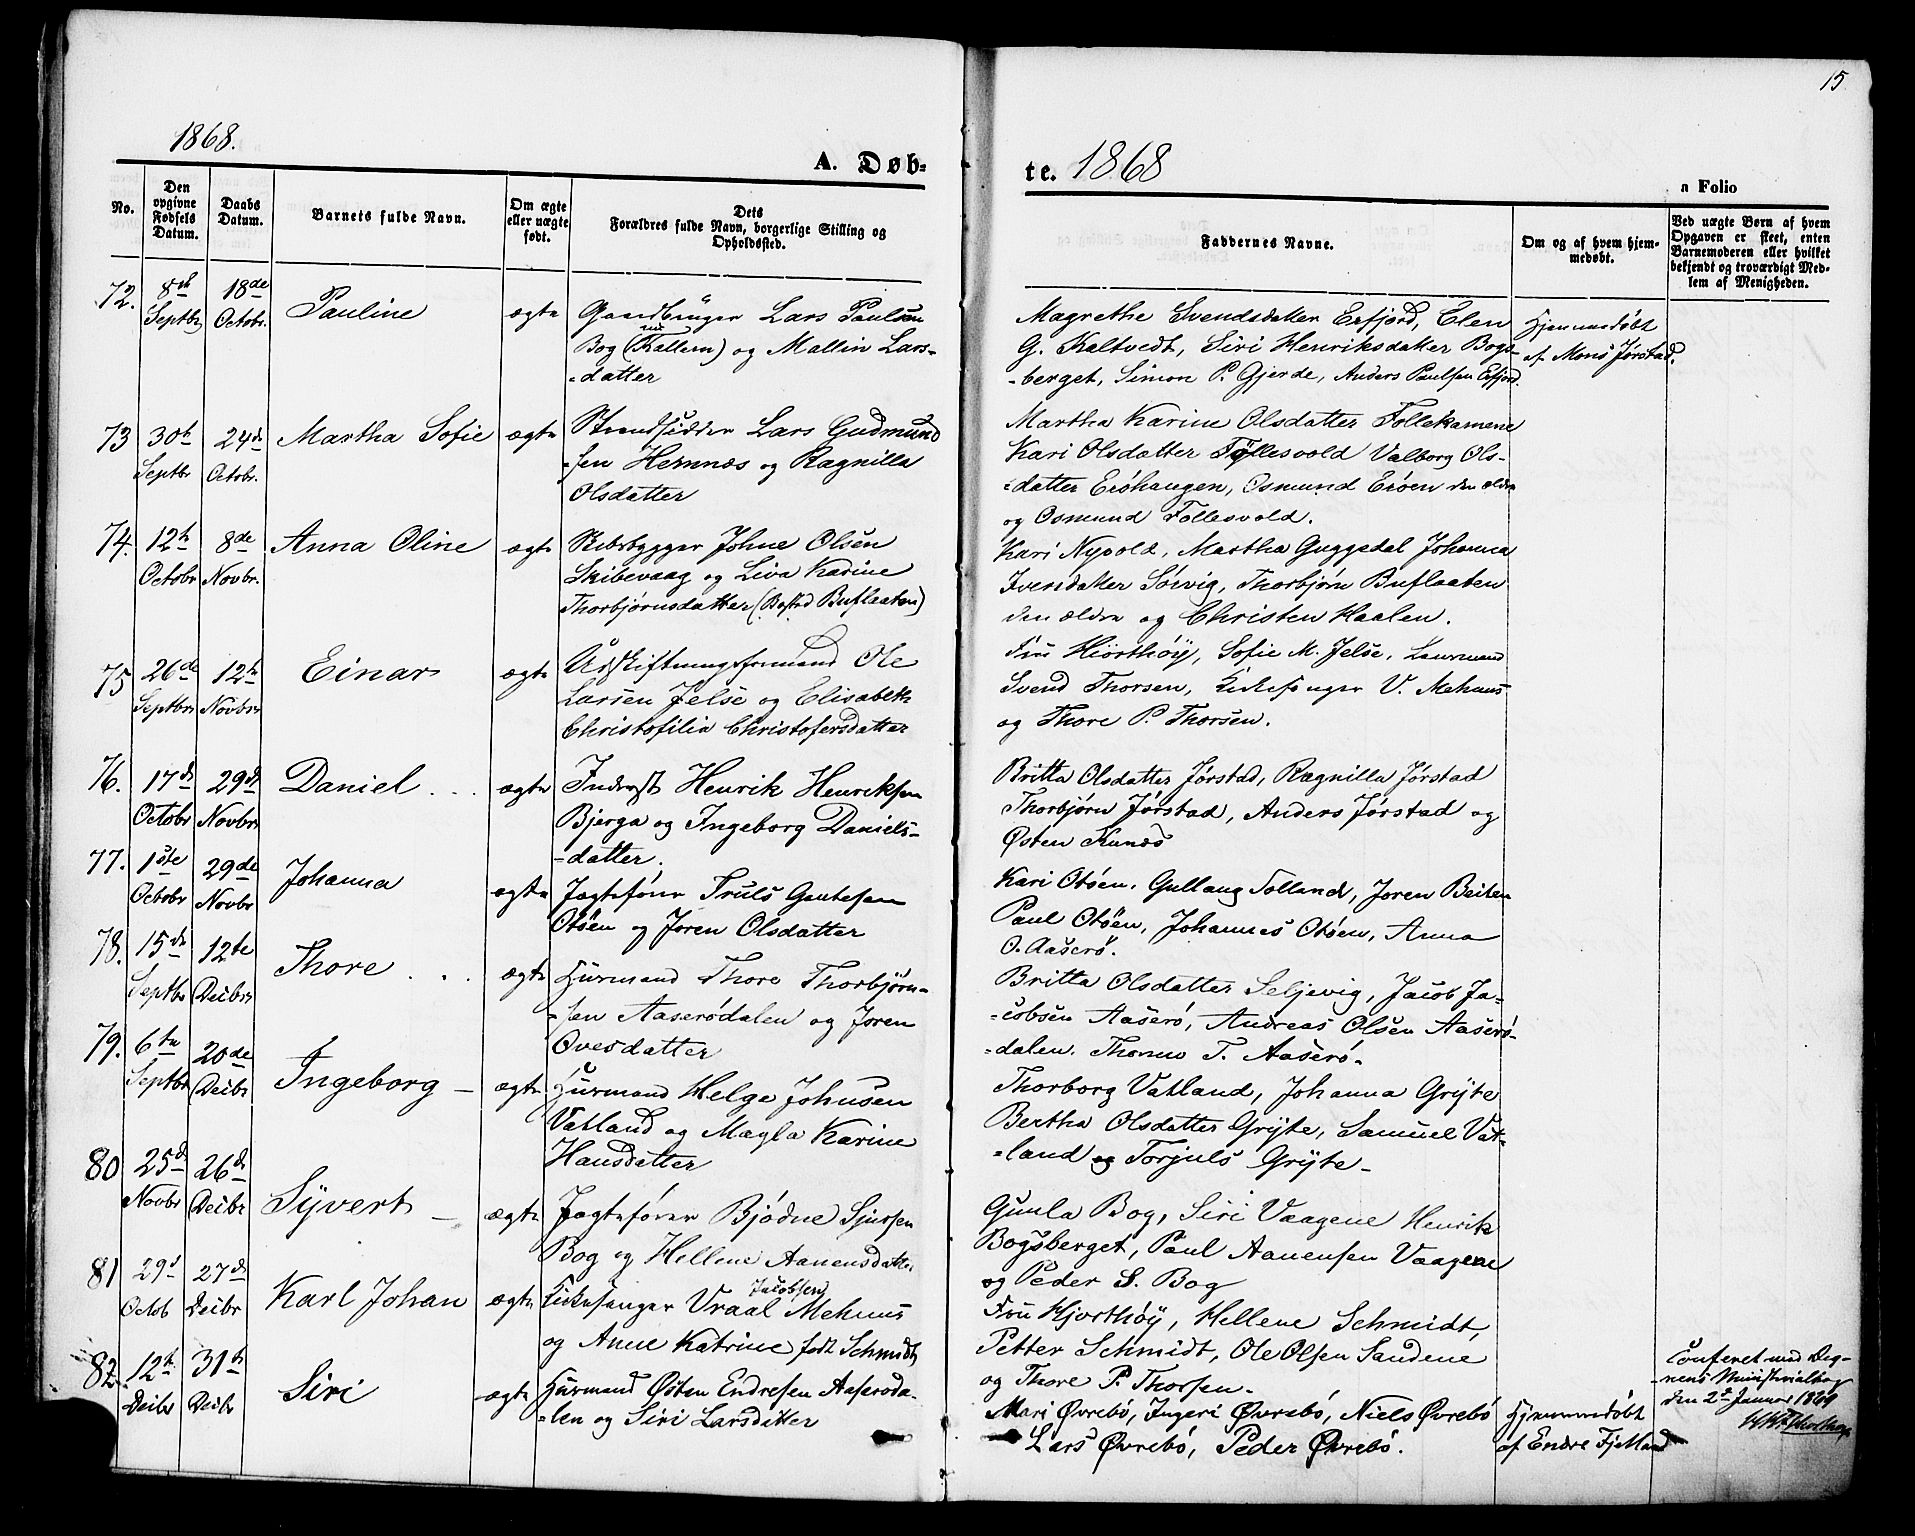 15
1868.
A. Døb-
te. 1868
n Folio
No.
Den opgivne Fødsels Datum.
Daabs Datum.
Barnets fulde Navn.
Om ægte eller uægte født.
Dets
Forældres fulde Navn, borgerlige Stilling og
Opholdssted.
Faddernes Navne.
Om og af hvem hjem-
medøbt.
Ved uægte Børn af hvem
Opgaven er skeet, enten
Barnemoderen eller hvilket
bekjendt og troværdigt Med-
lem af Menigheden.
72. 8de Septbr 18de Octobr. Pauline ægte
Gaardbruger Lars Paulsen
Bog (Kallern) og Mallin Lars-
=datter
Magrethe Svendsdatter Erfjord, Elen
G. Kaltvedt, Siri Henriksdatter Bogs-
-berget, Simon P. Gjerde, Anders Paulsen Erfjord.
Hjemmedøbt
af Mons Jørstad.
73 30te Septbr 24de Octobr. Martha Sofie ægte
Strandsidder Lars Gudmund
=sen Hernnæs og Ragnilla
Olsdatter
Martha Karine Olsdatter Follekamene
Kari Olsdatter Follesvold Valborg Ols-
=datter Erøhaugen, Osmund Erøen den ældre
og Osmund Follesvold.
74. 12te Octobr 8de Novbr. Anna Oline ægte
Skibsbygger Johne Olsen
Skibevaag og Liva Karine
Thorbjørnsdatter (Bosted Buflaaten)
Kari Nyvold, Martha Guggedal Johanna
Iversdatter Sørvig, Thorbjørn Buflaaten
den ældre og Christen Haalen.
75 26de Septbr 12te Novbr Einar ægte
Udskiftningsformand Ole
Larsen Jelse og Elisabeth
Christofilia Christofersdatter
Fru Hiorthøÿ, Sofie M. Jelse, Lensmand
Svend Thorsen, Kirkesanger V. Mehuus
og Thore P. Thorsen.
76. 17de Octobr 29de Novbr Daniel ægte
Inderst Henrik Henriksen
Bjerga og Ingeborg Daniels-
-datter.
Britta Olsdatter Jørstad, Ragnilla Jørstad
Thorbjørn Jørstad, Anders Jørstad og
Østen Funæs
77. 1ste Octobr 29de Novbr Johanna ægte
Jagtefører Truls Gautesen
Otøen og Joren Olsdatter
Kari Otøen, Gullaug Tolland, Joren Beiten
Paul Otøen, Johannes Otøen, Anna
O. Aaserø.
78. 15de Septbr 12te Decbr Thore ægte
Huusmand Thore Thorbjørn-
=sen Aaserødalen og Joren
Ovesdatter
Britta Olsdatter Seljevig, Jacob Ja-
=cobsen Aaserø, Andreas Olsen Aaserø-
-dalen. Thomas T. Aaserø.
79. 6te Septbr 20de Decbr Ingeborg – ægte
Huusmand Helge Johnsen
Vatland og Magla Karine
Hansdatter
Thorborg Vatland, Johanna Grÿte
Bertha Olsdatter Grÿte, Samuel Vat-
-land og Torjuls Grÿte –
80 25de Novbr 26de Decbr Sÿvert – ægte
Jagtefører Bjødne Sjursen
Bog og Hellene Aanensdatter
Gunla Bog, Siri Vaagene Henrik
Bogsberget, Paul Aanensen Vaagene
og Peder S. Bog
81 29d Octob 27de Decbr Karl Johan ægte
Kirkesanger Vraal Jacobsen Mehuus
og Anne Katrine født Schmidt
Fru Hjorthøÿ, Hellene Schmidt,
Petter Schmidt, Ole Olsen Sandene
og Thore P. Thorsen.
82. 12te Decbr 31te Decbr Siri ægte
Huusmand Østen Endresen Aaseroda-
-len og Siri Larsdatter
Mari Øvrebø, Ingeri Øvrebø, Niels Øvrebø
Lars Øvrebø, Peder Øvrebø.
Hjemmedøbt
af Endre Fjelland
Conferet med Deg-
-nens Ministerialbog
den 2d Januar 1869